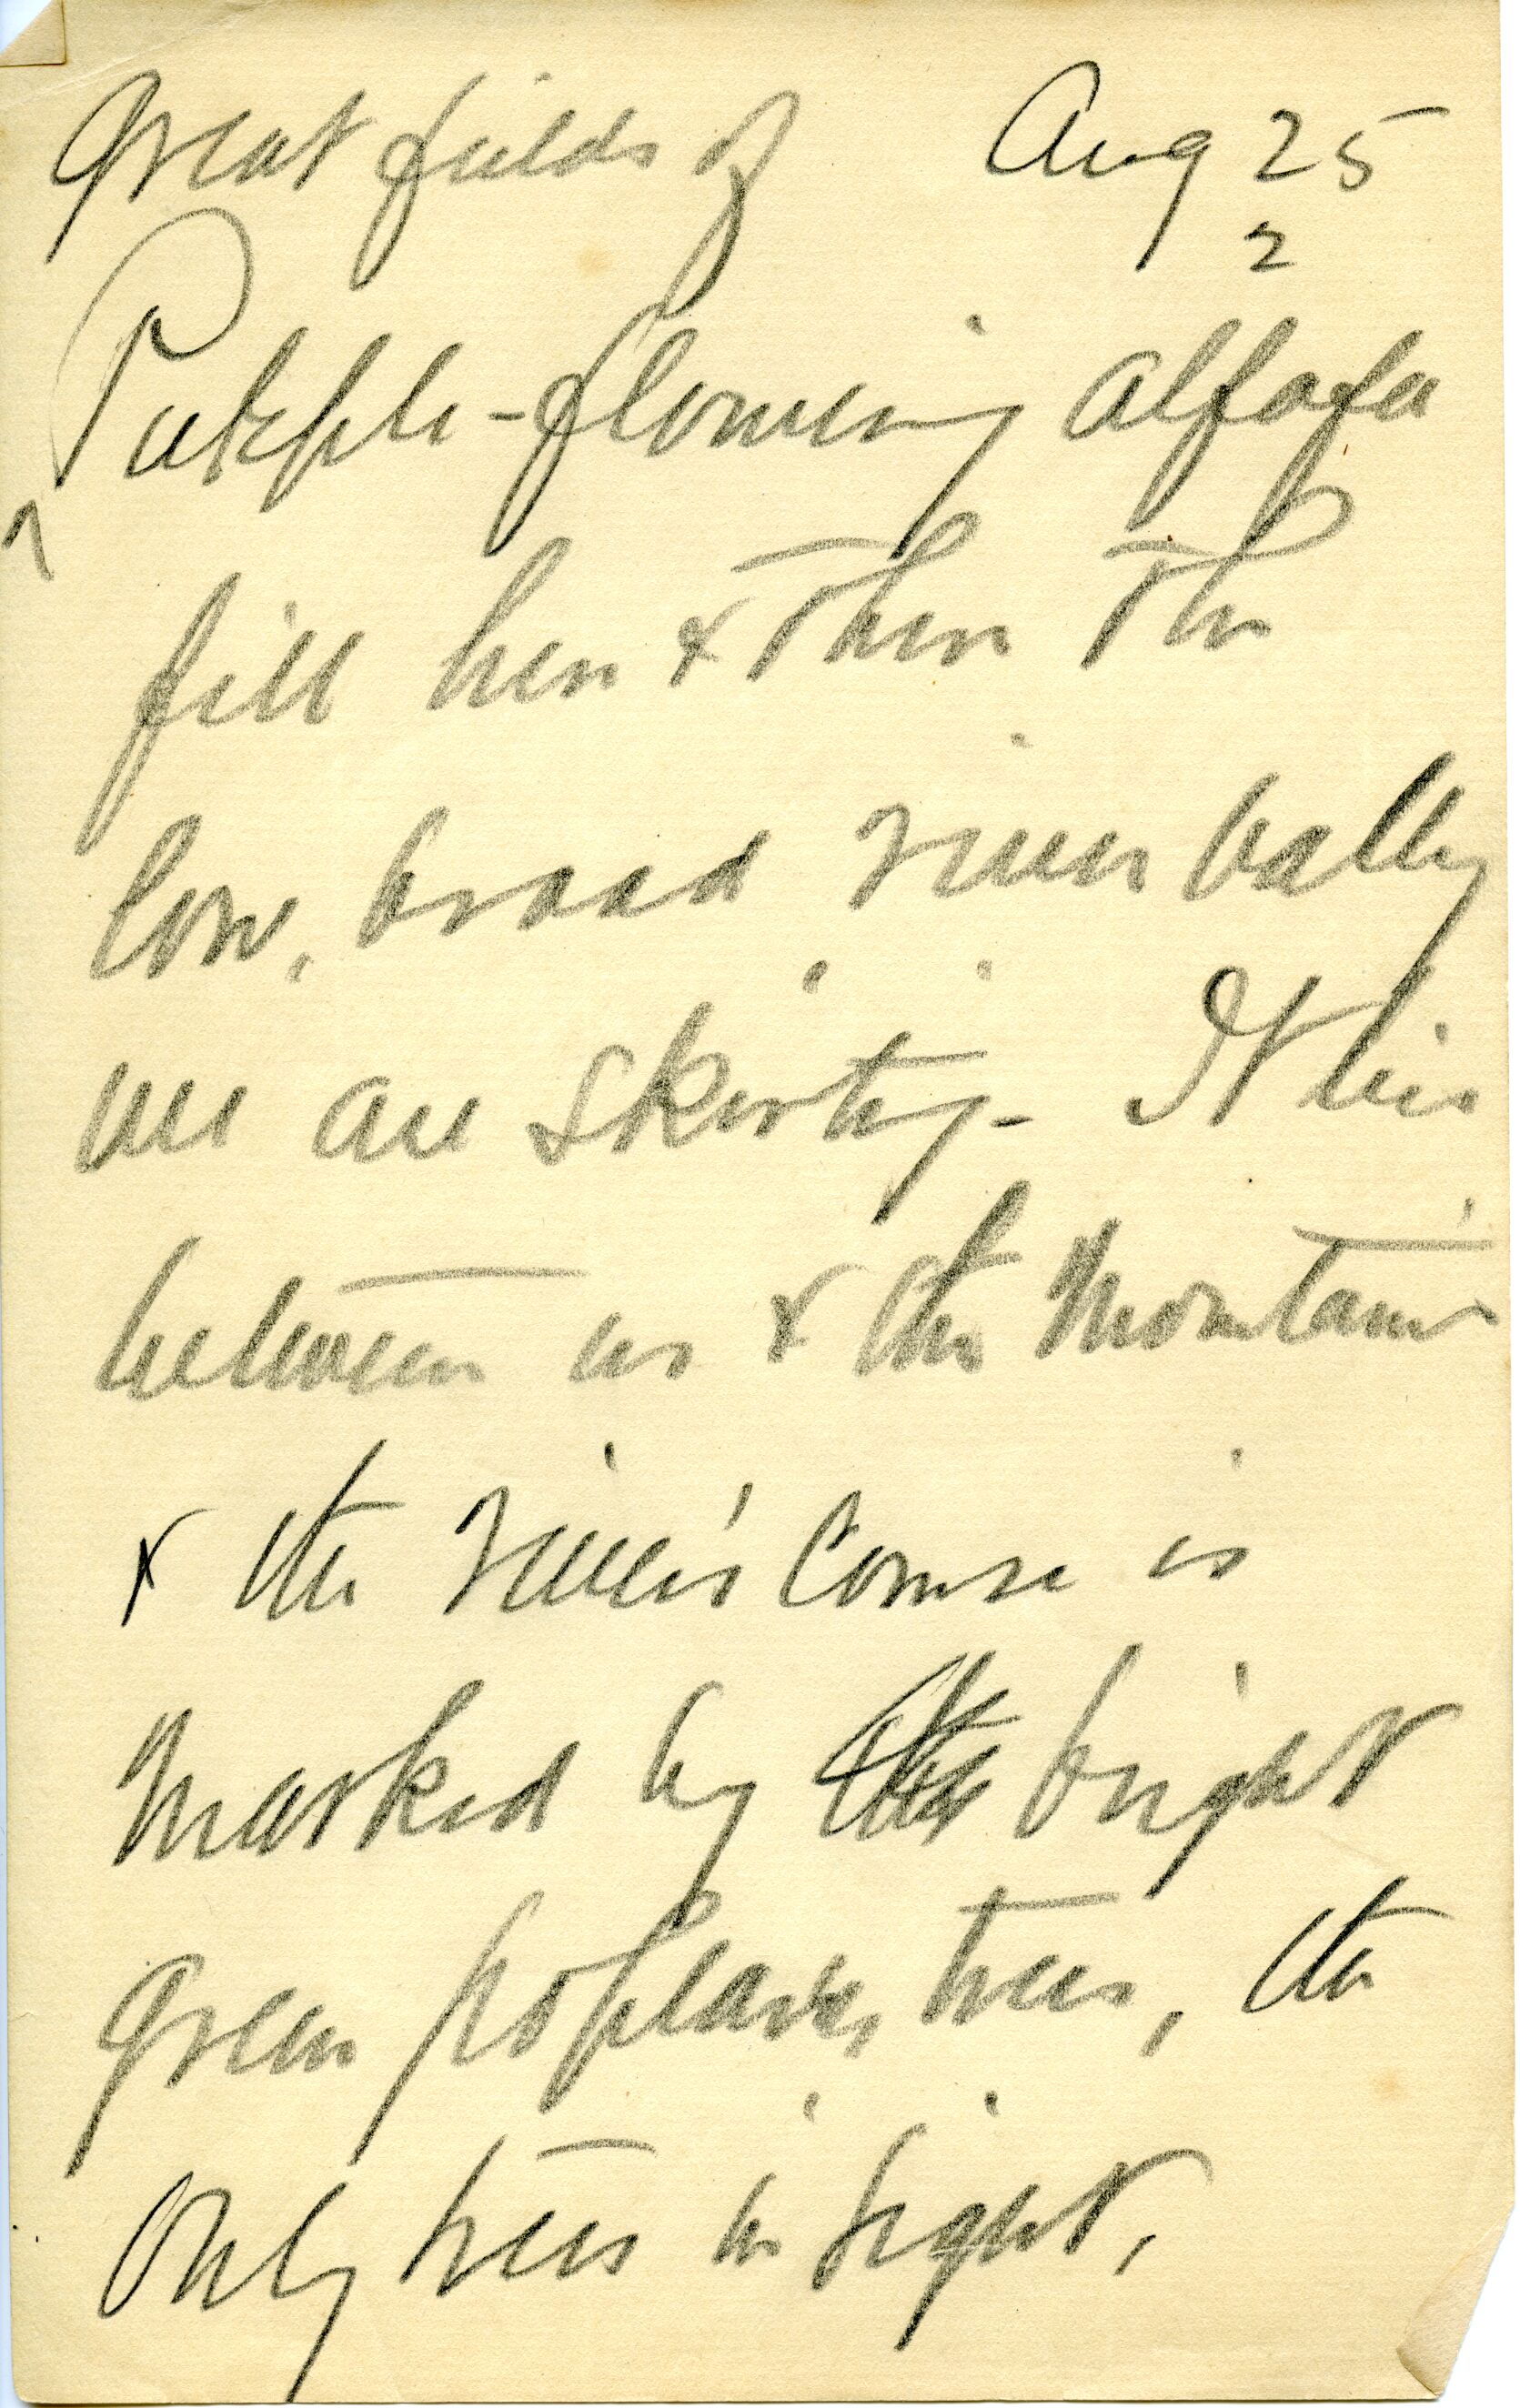 Great fields of Aug 25
2
Purple-flowering alfafa
fill here & there the
low, broad river valley
we are skirting - It lies
between us & the mountains
& the river's course is
marked by the bright
green poplars, trees, the
only trees in sight.